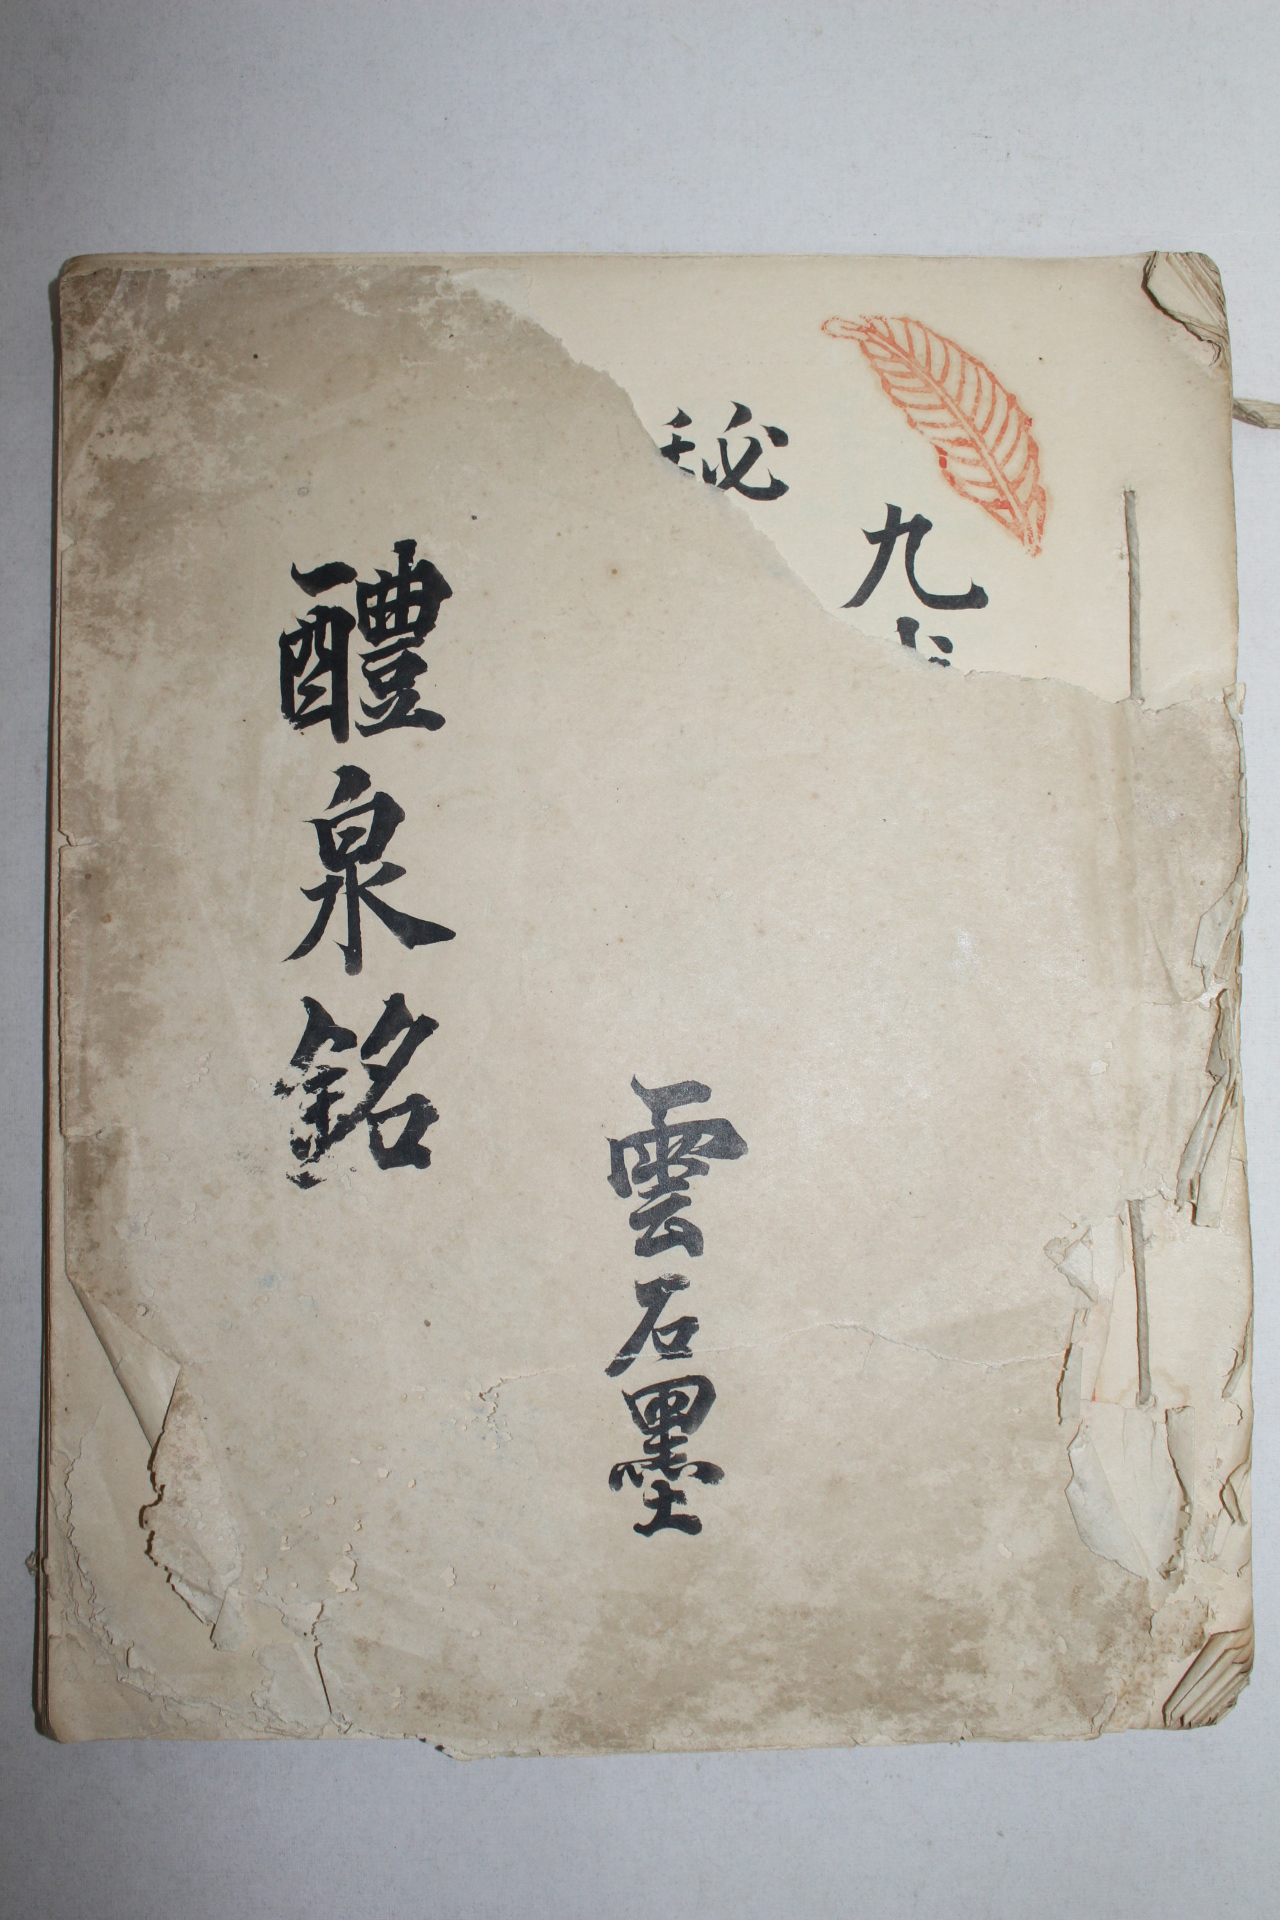 九
秘
雲石墨
醴泉銘